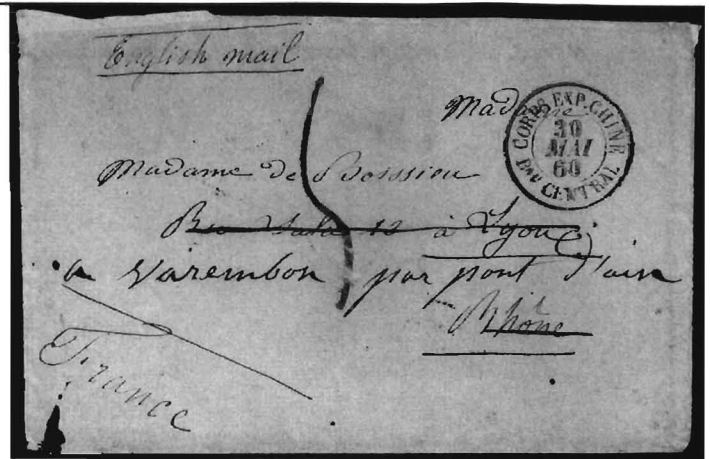 English mail
Madame
CORPS EXP. CHINE
30
MAI
60
Bau CENTRAL
Madame de Boissieu
Rue Sala 12 à Lyon
a Varembon par pont d'ain
Rhône
France